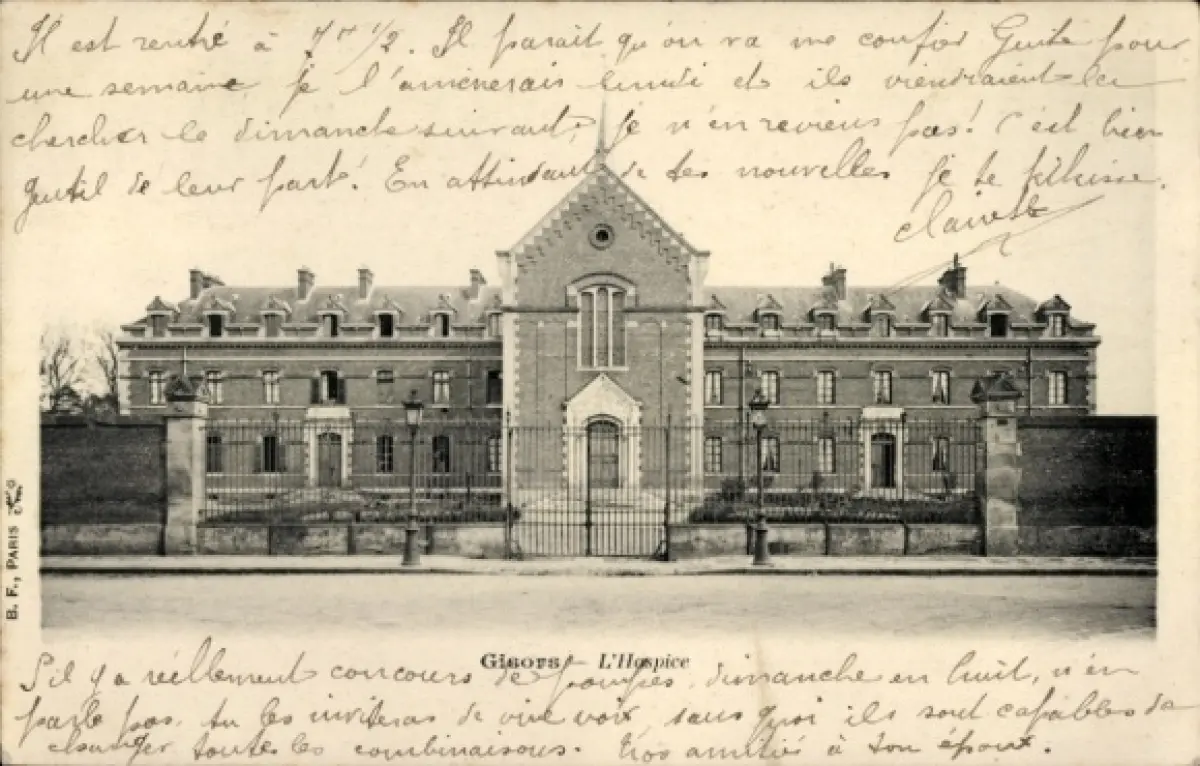 Il est rentré à 7h 1/2. Il paraît qu'on va me confier Guite pour
une semaine je l'amènerais lundi et ils viendraient la
chercher le dimanche suivant, je n'en reviens pas! C'est bien
gentil de leur part! En attendant de tes nouvelles je te
Claire
B. F., PARIS
Gisors — L'Hospice
S'il y a réellement concours de pompes, dimanche en huit, n'en
parle pas, tu les inviteras de vive voix, sans quoi ils sont capables de
changer toutes les combinaisons. Nos amitiés à ton époux.